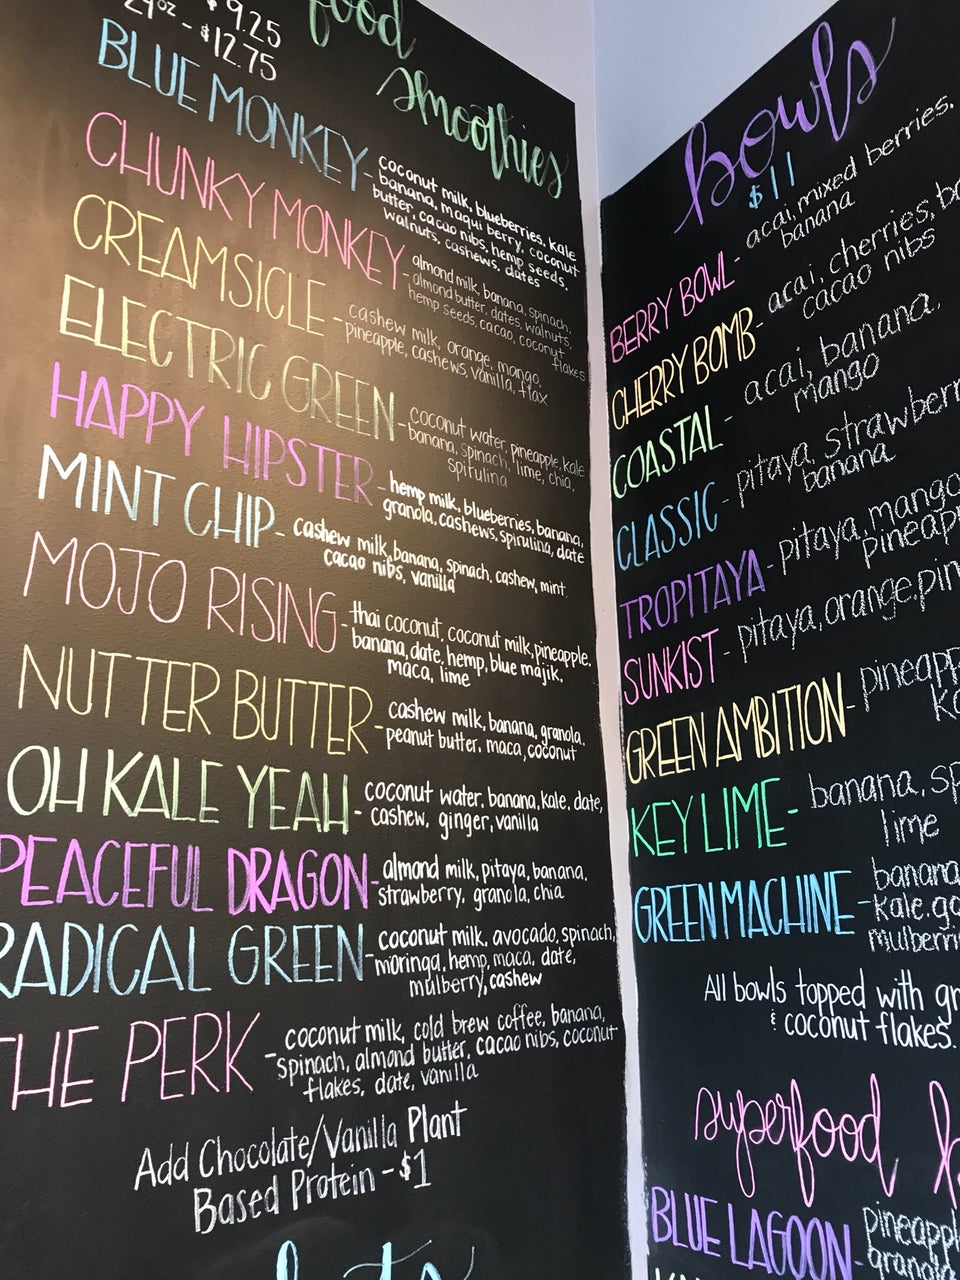 $9.25
24oz - $12.75
food
smoothies
BLUE MONKEY - coconut milk, blueberries, kale
banana, maqui berry, coconut
butter, cacao nibs, hemp seeds,
walnuts, cashews, dates
CHUNKY MONKEY - almond milk, banana, spinach,
almond butter, dates, walnuts,
hemp seeds, cacao, coconut
flakes
CREAMSICLE - cashew milk, orange, mango,
pineapple, cashews, vanilla, flax
ELECTRIC GREEN - coconut water, pineapple, kale
banana, spinach, lime, chia,
spirulina
HAPPY HIPSTER - hemp milk, blueberries, banana,
granola, cashews, spirulina, date
MINT CHIP - cashew milk, banana, spinach, cashew, mint
cacao nibs, vanilla
MOJO RISING - thai coconut, coconut milk, pineapple,
banana, date, hemp, blue majik,
maca, lime
NUTTER BUTTER - cashew milk, banana, granola,
peanut butter, maca, coconut
OH KALE YEAH - coconut water, banana, kale, date,
cashew, ginger, vanilla
PEACEFUL DRAGON - almond milk, pitaya, banana,
strawberry, granola, chia
RADICAL GREEN - coconut milk, avocado, spinach,
moringa, hemp, maca, date,
mulberry, cashew
THE PERK - coconut milk, cold brew coffee, banana,
spinach, almond butter, cacao nibs, coconut
flakes, date, vanilla
Add Chocolate/Vanilla Plant
Based Protein - $1
bowls
$11
BERRY BOWL - acai, mixed berries,
banana
CHERRY BOMB - acai, cherries,
cacao nibs
COASTAL - acai, banana,
mango
CLASSIC - pitaya, strawberr
banana
TROPITAYA - pitaya, mango
pineap
SUNKIST - pitaya, orange, pin
GREEN AMBITION - pineapp
k
KEY LIME - banana, sp
lime
GREEN MACHINE - banana
kale, go
mulberri
All bowls topped with gr
& coconut flakes.
superfood
BLUE LAGOON - pineappl
granola